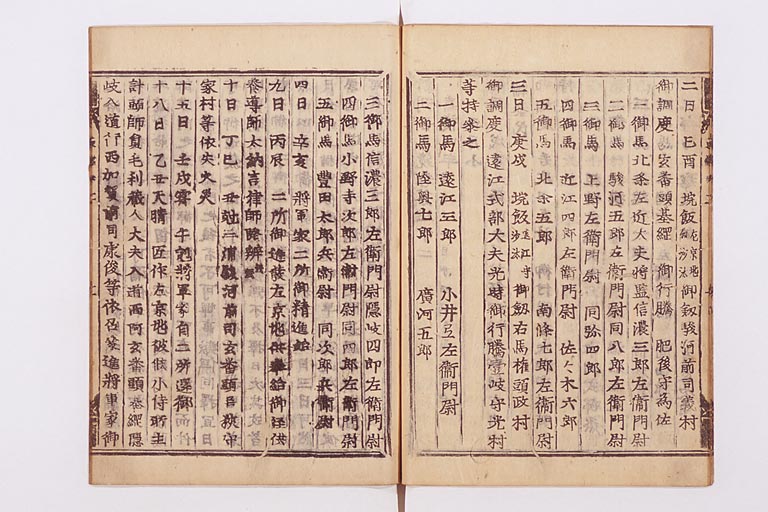 二日 己酉 垸飯 左京兆御沙汰 御釼駿河前司義村
御調度 玄番頭基綱 御行騰 肥後守為佐
一御馬 北条左近大夫将監 信濃三郎左衛門尉
二御馬 駿河五郎左衛門尉 同八郎左衛門尉
三御馬 上野左衛門尉 同弥四郎
四御馬 近江四郎左衛門尉 佐々木六郎
五御馬 北条五郎 南條七郎左衛門尉
三日 庚戌 垸飯 遠江守沙汰 御釼右馬権頭政村
御調度 遠江式部大夫光時 御行騰壹岐守光村
等持参之
一御馬 遠江三郎 小井弖左衛門尉
二御馬 陸奥七郎 廣河五郎
三御馬 信濃三郎左衛門尉 隠岐四郎左衛門尉
四御馬 小野寺次郎左衛門尉 同四郎左衛門尉
五御馬 豊田太郎兵衛尉 同次郎兵衛尉
四日 辛亥 将軍家二所御精進始
九日 丙辰 二所御進發左京地
養尊師大納言律師隆辨
十日 丁巳 丑尅 駿河前司玄番頭
家村等依失火災
十五日 壬戌 霽 午尅将軍家自二所還御
十八日 乙丑 天晴 匠作左京地被候小侍所主
計頭師員毛利蔵人大夫入道西阿玄番頭基綱隠
岐入道行西加賀前司康俊等依召参進将軍家御